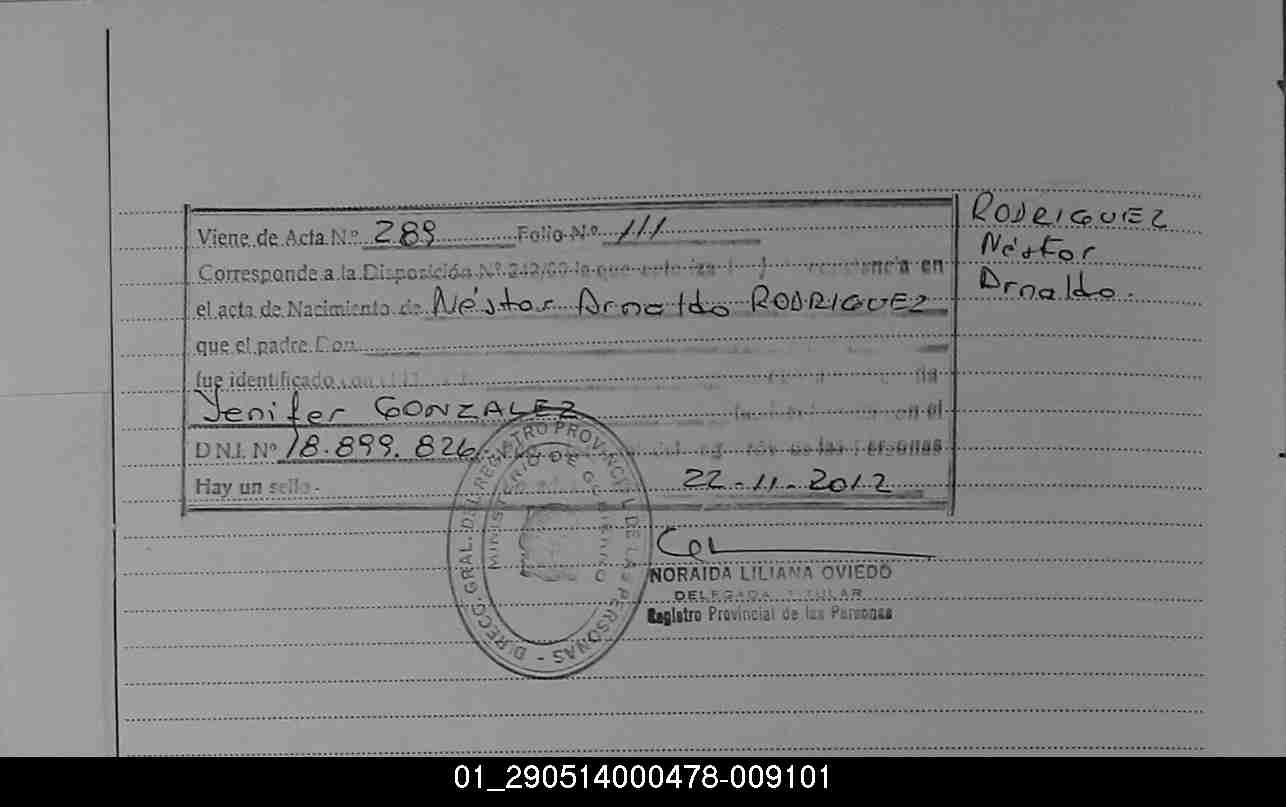 Viene de Acta N.º 289 Folio N.º 111
Corresponde a la Disposición Nº 242/00 la que
en
el acta de Nacimiento de Néstor Arnaldo RODRIGUEZ
que el padre Don
fue identificado con el
Yenifer GONZALEZ
en el
D N.I. Nº 18.899.826
de las Personas
Hay un sello.
22-11-2012
RODRIGUEZ
Néstor
Arnaldo.
DIRECC. GRAL. DEL REGISTRO PROVINCIAL DE LAS PERSONAS -
MINISTERIO DE GOBIERNO
NORAIDA LILIANA OVIEDO
DELEGADA TITULAR
Registro Provincial de las Personas
01_290514000478-009101